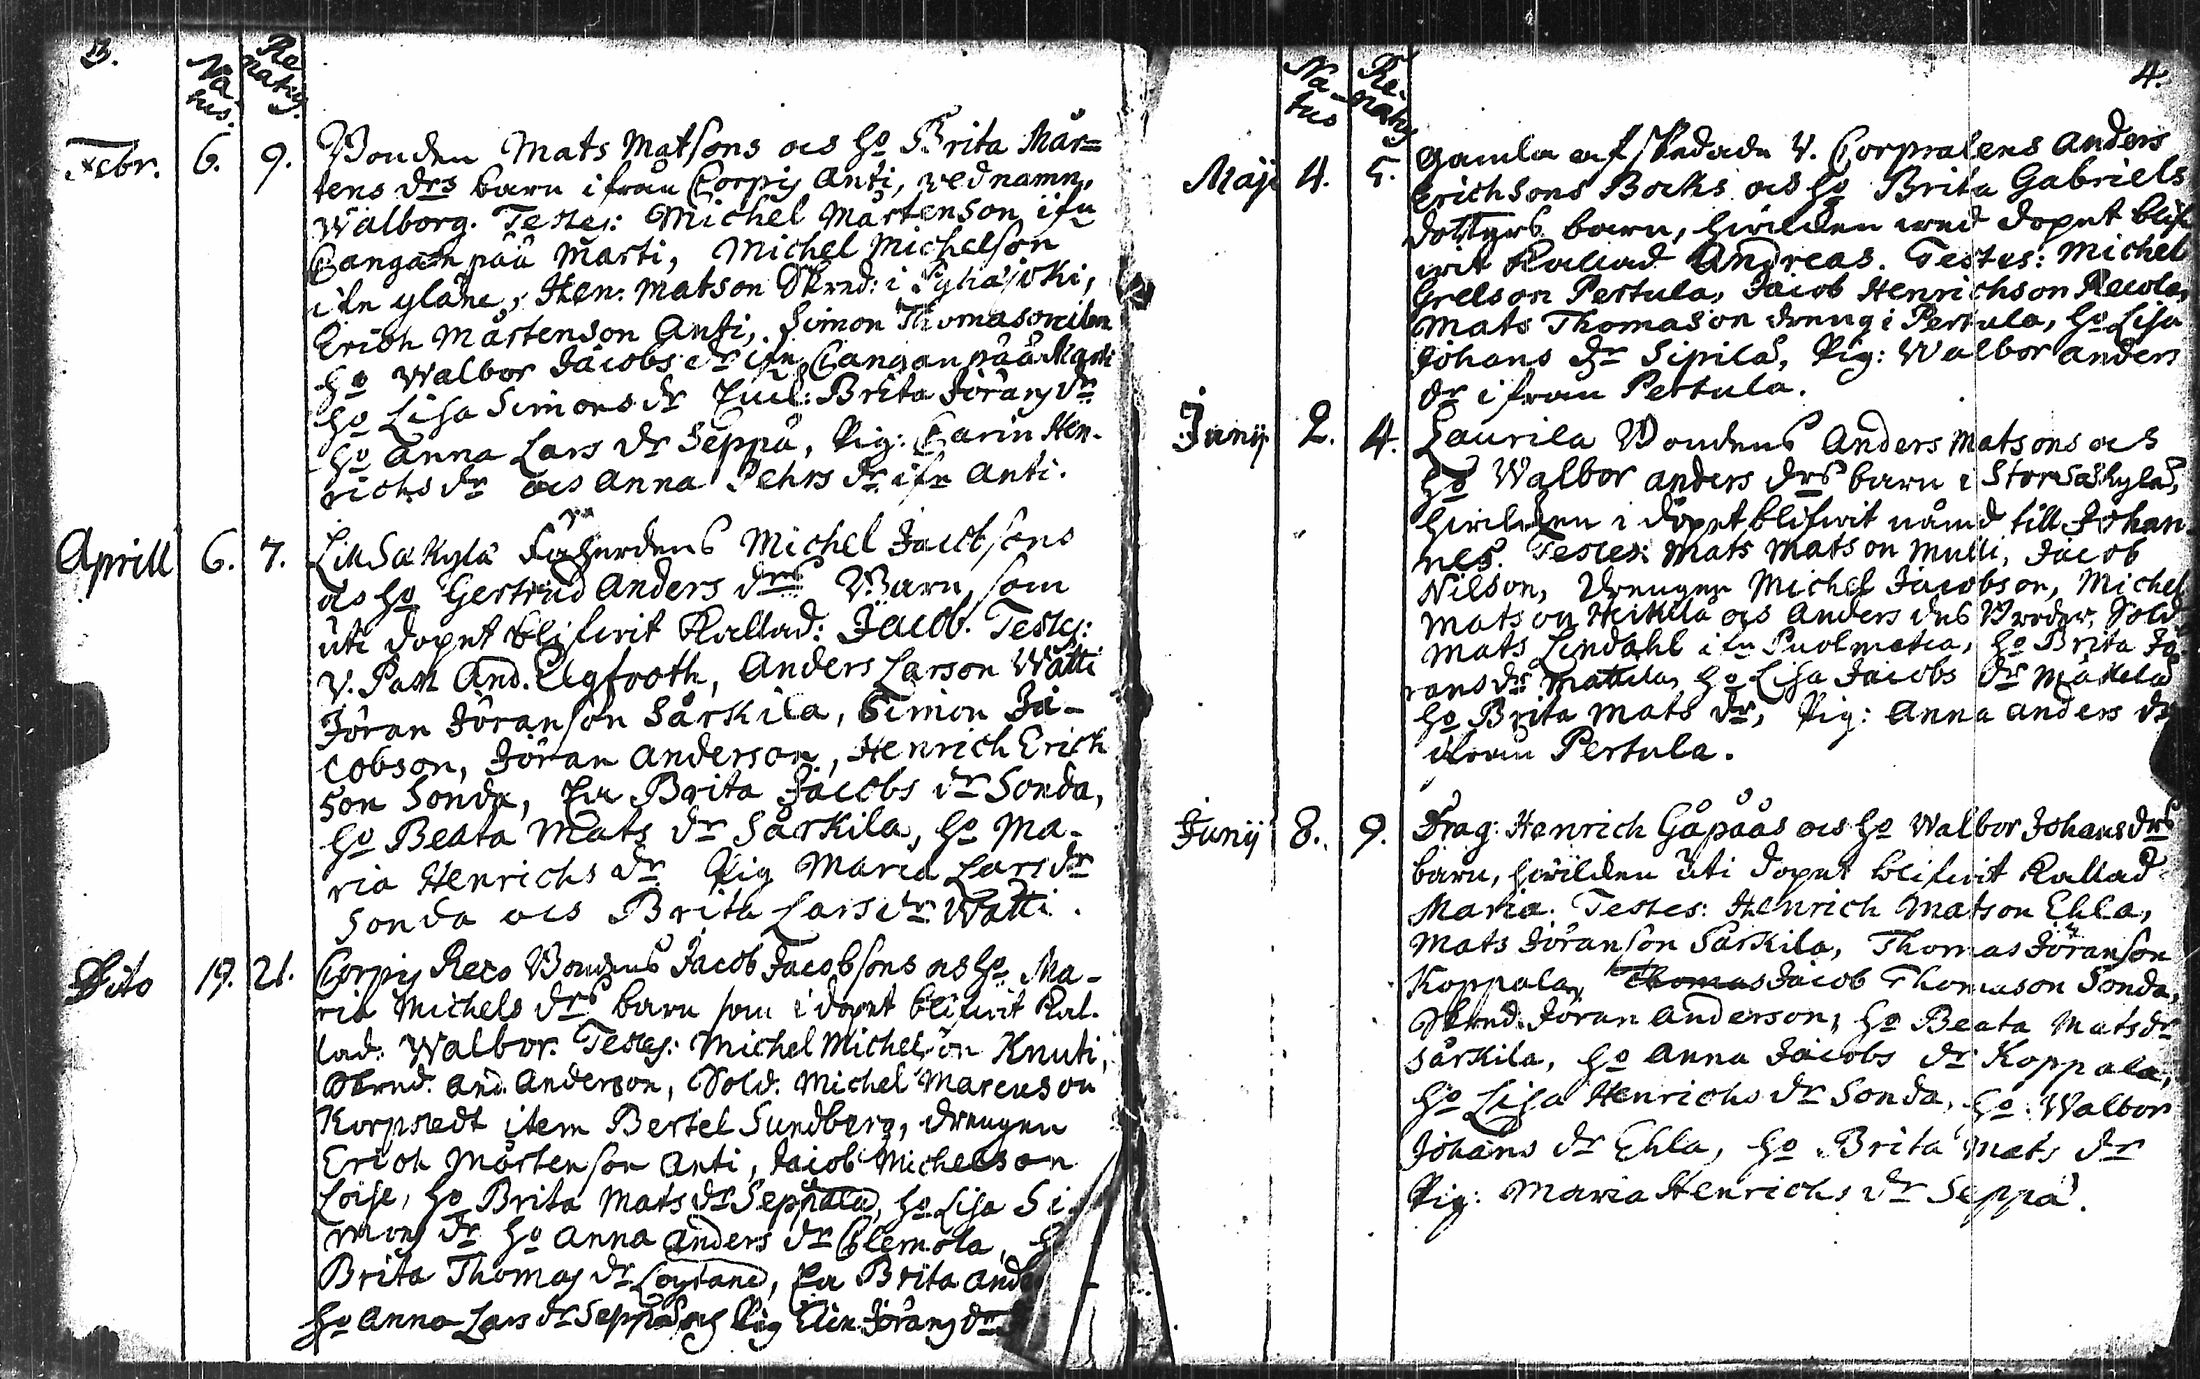 3.
Natus. Renatus.
Febr. 6. 9. Bonden Mats Matsons ocs ho Brita Mår=
tens drs barn ifrån Corpis Anti, ved namn,
Walborg. Testes: Michel Mårtenson ifn
Cangan pää Marti, Michel Michelson
ifn yläne, Hen: Matson Skred: i Pyhäjoki,
Erich Mårtenson Anti, Simon Thomason
ho Walbor Jacobs dr ifn Cangan pää Marti
ho Lisa Simons dr Brita Jörans dr
ho Anna Lars dr Seppä, Pig: Carin Hen-
richs dr ocs Anna Pehrs dr ifn Anti.
Aprill 6. 7. Lill Säkylä Michel Jacobsons
ocs ho Gertrud Anders drs Barn, som
uti dopet blifwit kallad: Jacob. Testes:
V. Past And. Elgfooth, Anders Larson Watti
Jöran Jöranson Särkilä, Simon Ja-
cobson, Jöran Anderson, Henrich Erick
son Sonda, Brita Jacobs dr Sonda,
ho Beata Mats dr Särkilä, ho Ma-
ria Henrichs dr Pig Maria Lars dr
Sonda ocs Brita Lars dr Watti.
Dito 19. 21. Corpis Reco Bondens Jacob Jacobsons ocs ho Ma-
ria Michels drs barn som i dopet blifwit kal-
lad: Walbor. Testes: Michel Michelson Knuti,
Skred: And. Anderson, Sold. Michel Marcuson
Korpstedt item Bertel Sundberg, drengen
Erich Mårtenson Anti, Jacob Michelson
Loise, ho Brita Mats dr Seppälä, ho Lisa Si-
mons dr ho Anna Anders dr Clemola, ho
Brita Thomas dr Brita And
ho Anna Lars dr Seppä Pig Elin Jörans dr
4.
Natus Renatus
Maji 4. 5. Gamla afskedade V. Corpralens Anders
Erichsons Bocks ocs ho Brita Gabriels
dotters barn, hwilcken wed dopet blif
wit kallad Andreas. Testes: Michel
Grelson Pertula, Jacob Henrichson Recola,
Mats Thomason dreng i Pertula, ho Lisa
Johans dr Sipilä, Pig: Walbor Anders
dr ifrån Pertula.
Junij 2. 4. Laurila Bondens Anders Matsons ocs
ho Walbor Anders drs barn i Stor Säkylä,
hwilcken i dopet blifwit nämd till Johan-
nes. Testes: Mats Matson Mulli, Jacob
Nilson, Drengen Michel Jacobson, Michel
Matson Heikilä ocs Anders des Broder, Sold
Mats Lindahl ifn ho Brita Jö
rans dr Mattila, ho Lisa Jacobs dr Mäkelä
ho Brita Mats dr, Pig: Anna Anders dr
ifrån Pertula.
Junij 8. 9. Drag: Henrich Gåpåås ocs ho Walbor Johans drs
barn, hwilcken uti dopet blifwit kallad
Maria. Testes: Henrich Matson Ehla,
Mats Jöranson Särkilä, Thomas Jöranson
Koppala, Thomas Jacob Thomason Sonda,
Skred: Jöran Anderson, ho Beata Mats dr
Särkila, ho Anna Jacobs dr Koppala,
ho Lisa Henrichs dr Sonda, ho: Walbor
Johans dr Ehla, ho Brita Mats dr
Pig: Maria Henrichs dr Seppä.